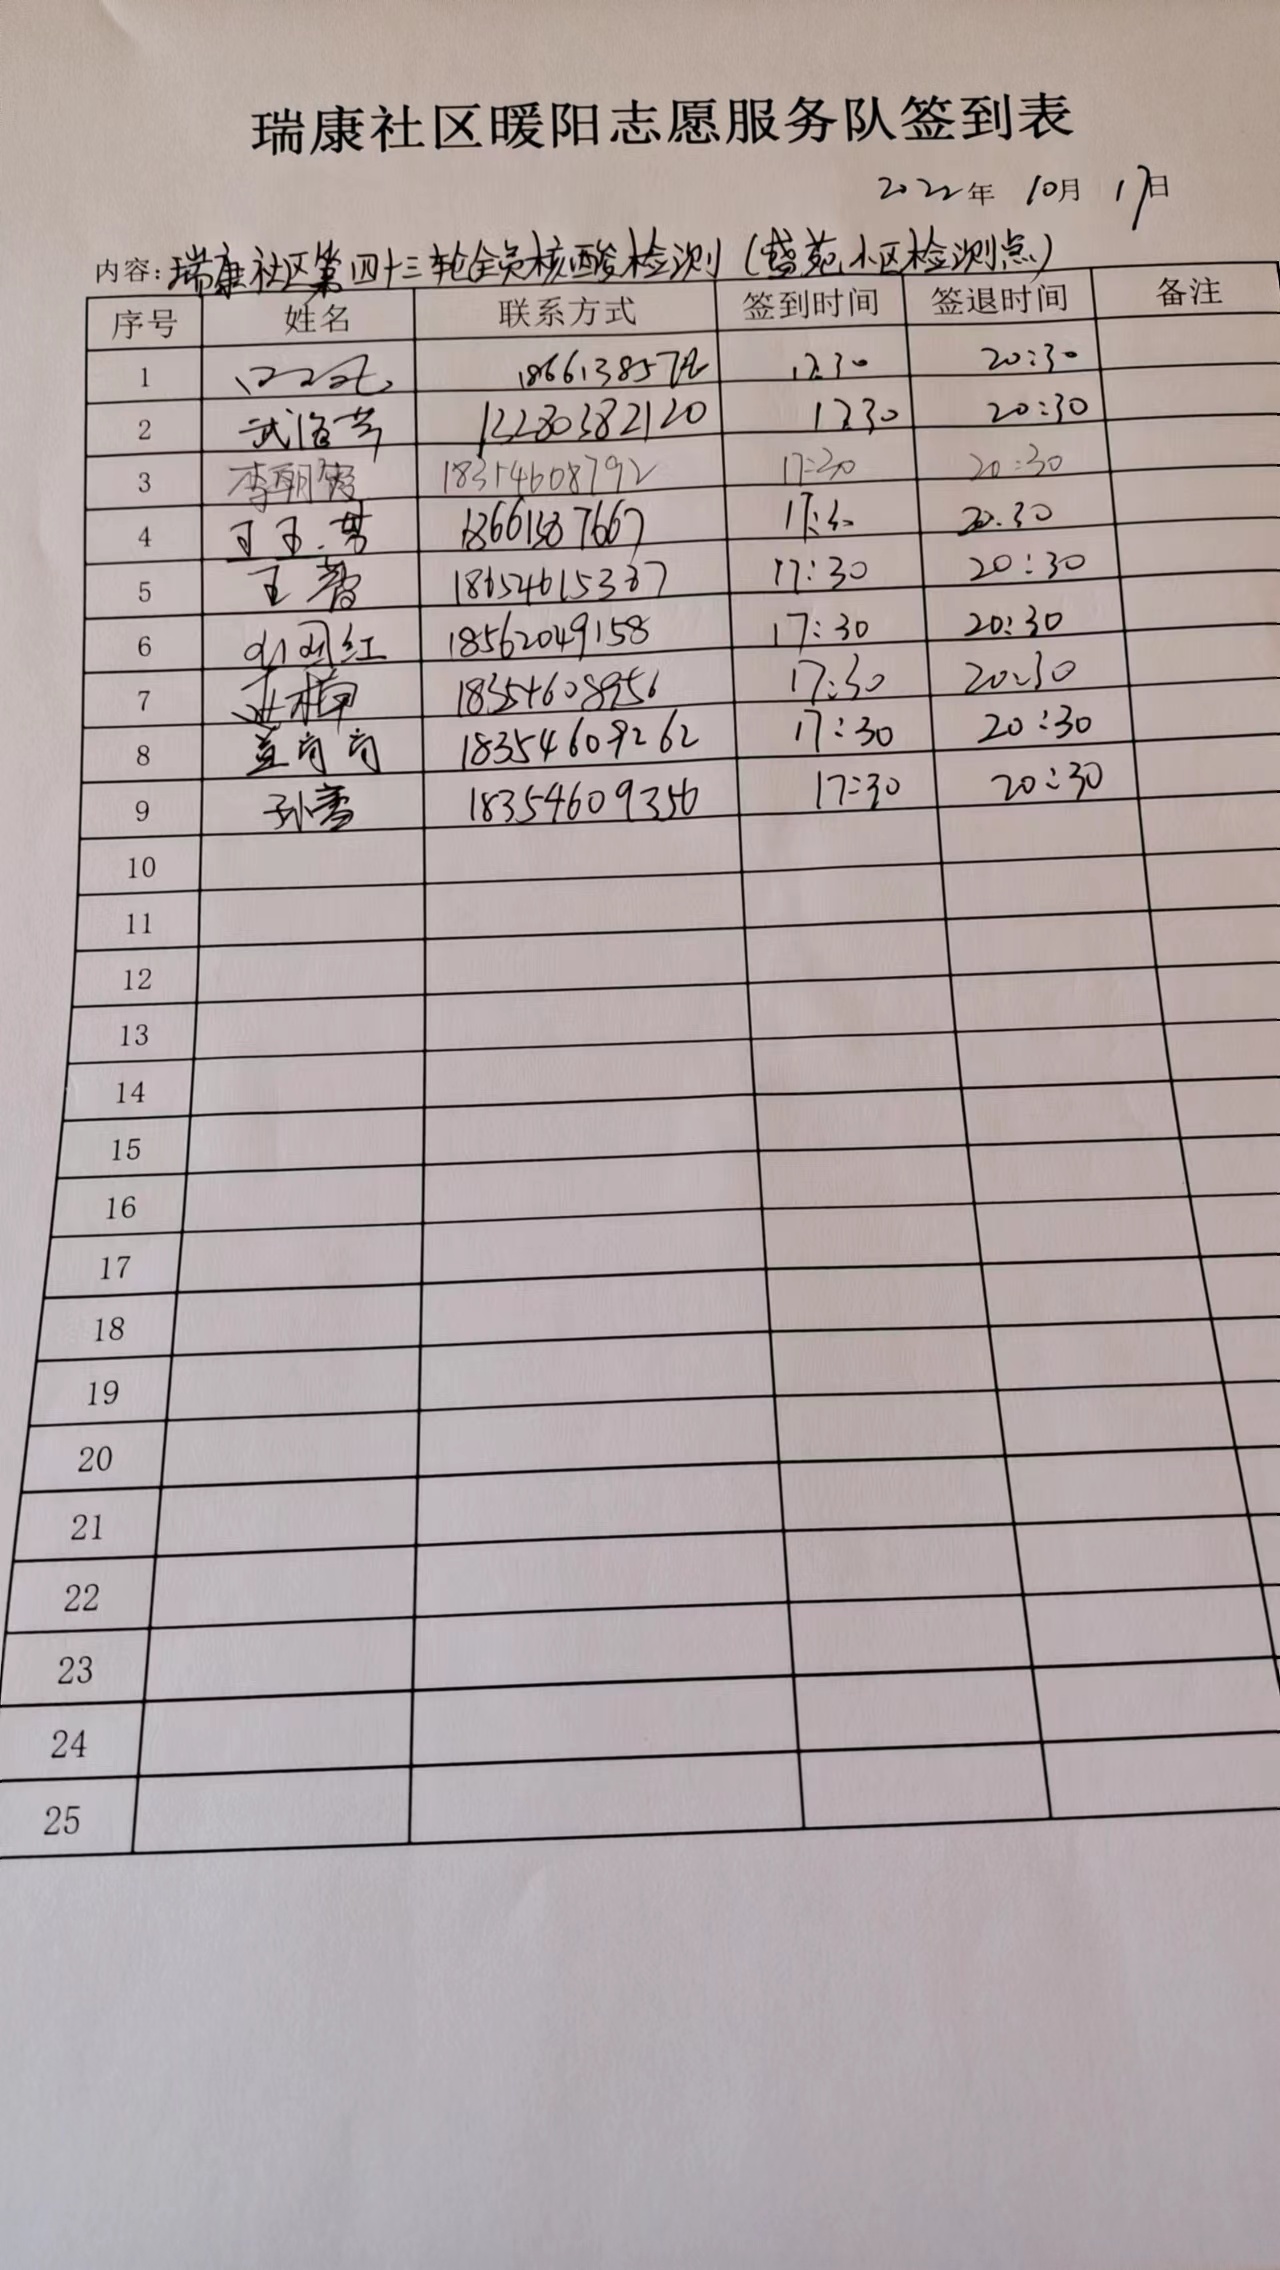 瑞康社区暖阳志愿服务队签到表
2022年 10月 17日
内容：瑞康社区第四十三轮全员核酸检测（苑小区检测点）
序号 姓名 联系方式 签到时间 签退时间 备注
1 17:30 20:30
2 17:30 20:30
3 李朝霞 18354608792 17:30 20:30
4 18661587667 17:30 20:30
5 17:30 20:30
6 18562049158 17:30 20:30
7 18354608956 17:30 20:30
8 18354609262 17:30 20:30
9 18354609356 17:30 20:30
10
11
12
13
14
15
16
17
18
19
20
21
22
23
24
25